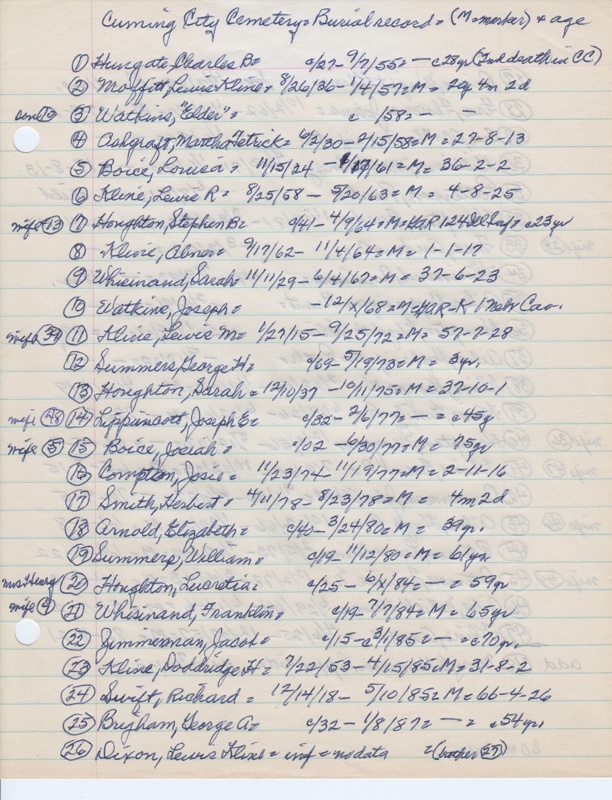 Cuming City Cemetery = Burial record = (M=marker) + age
① Hungate, Charles B = c/27 - 9/7/55 = - c28yr (2nd death in CC)
② Moffitt, Lewis Kline = 8/26/36 - 1/4/57 = M = 20y 4m 2d
son ⑲ ③ Watkins, "Elder" = c /58 = - -
④ Ashgraft, Martha Tetrick = 6/2/30 - 2/15/58 = M = 27-8-13
⑤ Boice, Louisa = 11/15/24 - /61 = M = 36-2-2
⑥ Kline, Lewis R = 8/25/58 - 5/20/63 = M = 4-8-25
wife ⑬ ⑦ Houghton, Stephen B = c/41 - 4/9/64 = M = GAR 124 Ill Inf = c23yr
⑧ Kline, Abner = 9/17/62 - 11/4/64 = M = 1-1-17
⑨ Whisinand, Sarah = 11/11/29 - 6/4/67 = M = 37-6-23
⑩ Watkins, Joseph = - 12/x/68 = M = GAR-K 1 Nebr Cav.
wife ㊴ ⑪ Kline, Lewis M = 1/27/15 - 9/25/72 = M = 57-7-28
⑫ Summers, George H = c/69 - 5/19/73 = M = 3yr.
⑬ Houghton, Sarah = 12/10/37 - 10/11/75 = M = 37-10-1
wife ㊽ ⑭ Lippincott, Joseph E = c/32 - 2/6/77 = - = c45y
wife ⑤ ⑮ Boice, Josiah = c/02 - 6/30/77 = M = 75yr
⑯ Compton, Josie = 11/23/74 - 11/19/77 = M = 2-11-16
⑰ Smith, Herbert = 4/11/78 - 8/23/78 = M = 4m2d
⑱ Arnold, Elizabeth = c/40 - 3/24/80 = M = 39yr.
⑲ Summers, William = c/19 - 11/12/80 = M = 61yr
mrs Henry ⑳ Houghton, Lucretia = c/25 - 6/x/84 = - = 59yr
wife ⑨ ㉑ Whisinand, Franklin = c/19 - 7/7/84 = M = 65yr
㉒ Zimmerman, Jacob = c/15 - c3/1/85 = - = c70yr.
㉓ Kline, Doddridge H = 7/22/53 - 4/15/85 = M = 31-8-2
㉔ Swift, Richard = 12/14/18 - 5/10/85 = M = 66-4-26
㉕ Brigham, George A = c/32 - 1/8/87 = - = c54yr.
㉖ Dixon, Lewis Kline = inf = no data = (brother ㉗)